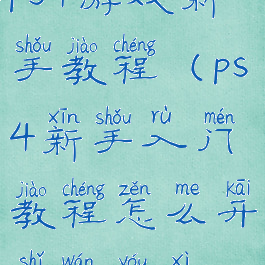 shǒu jiào chéng
手教程（ps
xīn shǒu rù mén
4新手入门
jiào chéng zěn me kāi
教程怎么开
shǐ wán yóu xì